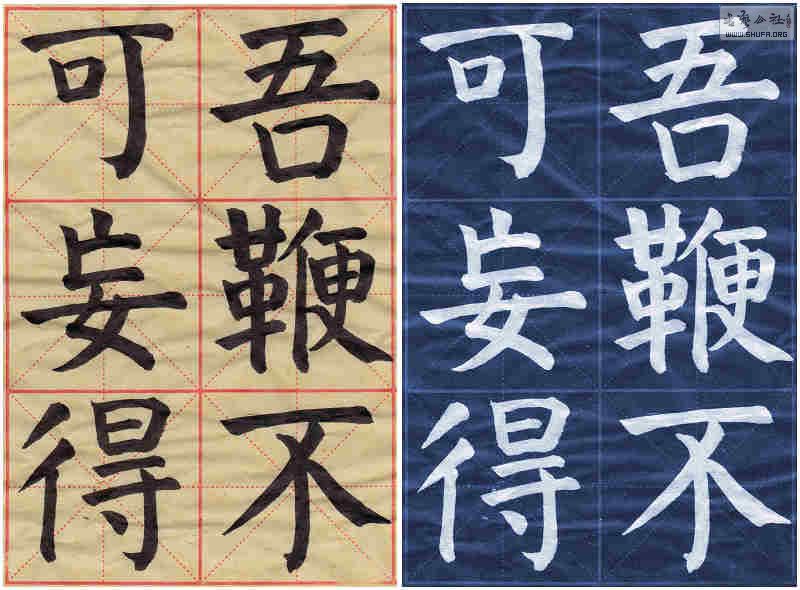 吾鞭不
可妄得
吾鞭不
可妄得
书艺公社
WWW.SHUFA.ORG